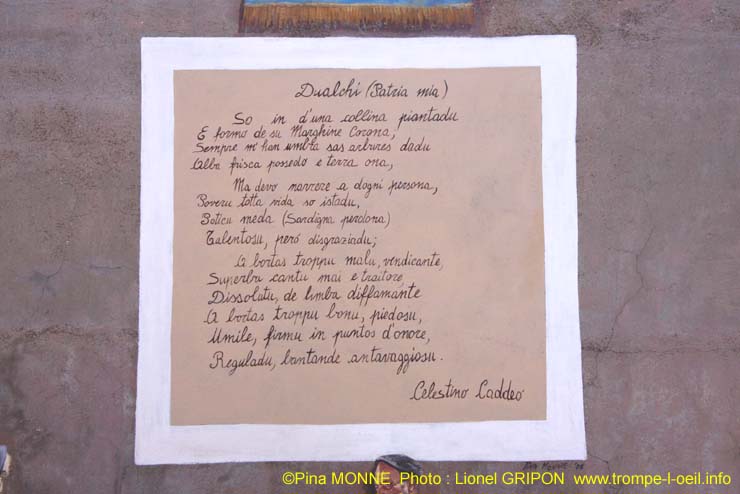 Dualchi (Patria mia)
So in d'una collina piantadu
E formo de su Marghine Corona,
Sempre m'han umbra sas arbures dadu
Abba frisca possedo e terra ona,
Ma devo narrere a dogni persona,
Poveru totta vida so istadu,
Poticu meda (Sardigna perdona)
Talentosu, però disgraziadu;
A bortas troppu malu, vendicante,
Superbu cantu mai e traitore
Dissolutu, de limba diffamante
A bortas troppu bonu, piedosu,
Umile, firmu in puntos d'onore,
Reguladu, bantande antavaggiosu.
Celestino Caddeo
Pina Monne '06
©Pina MONNE Photo : Lionel GRIPON www.trompe-l-oeil.info